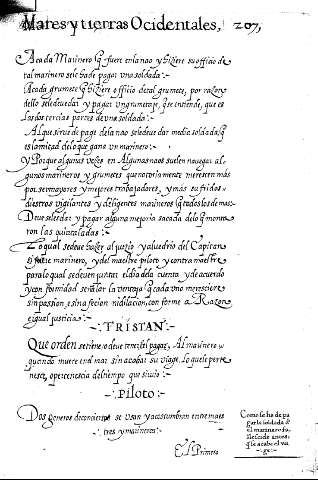 Mares y tierras Ocidentales, 207,
A cada Marinero q̃ fuere enla nao y hiziere su officio de
tal marinero sele hade pagar vna soldada:~
A cada grumete q̃ hiziere officio de tal grumete, por razon
dello sele deue dar y pagar vn grumetaje, que se intiende, que es
las dos tercias partes de vna soldada:~
Al que sirue de page dela nao sele deue dar media soldada, q̃
es la mitad delo que gana vn marinero:~
y Porque algunas vezes en Algunas naos suelen nauegar al
gunos marineros y grumetes que notoriamente meresen mas
por ser mayores y mejores trabajadores, y mas sufridos
diestros vigilantes y deligentes marineros q̃ todos los demas:
Deueseles dar y pagar alguna mejoria sacada delo q̃ monta
ron las quintaladas:~
Lo qual se deue hazer al juizio y aluedrio del Capitan
si fuere marinero, y del maestre piloto y contra maestre
para lo qual se deuen juntar el dia dela cuenta y de acuerdo
y conformidad señalar la ventaja q̃ cada vno meresciere
sin passion, e sin aficion ni dilacion, conforme a Razon
e igual justicia:~
~:TRISTAN:~
Que orden se tiene o deue tener del pagar, Al marinero
quando muere en el mar sin acabar su viage. Lo que le perte
nesce, o pertenescia del tiempo que siruio:~
~:PILOTO:~
Dos generos de conciertos se vsan y acostumbran entre maes
~: tres y marineros:~
Como se ha de pa
gar la soldada d̃
el marinero fa
llescido antes
q̃ se acabe el via
~ge:~
El Primero